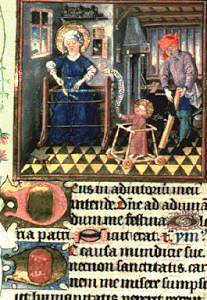 eus in adiutoriū meū
intende. Dn̄e ad adiuuā
dum me festina
ria patri sicut erat. ym̄
causa mundicie fu
necnon sanctitatis car
me miser sumpſ
et humanitatis